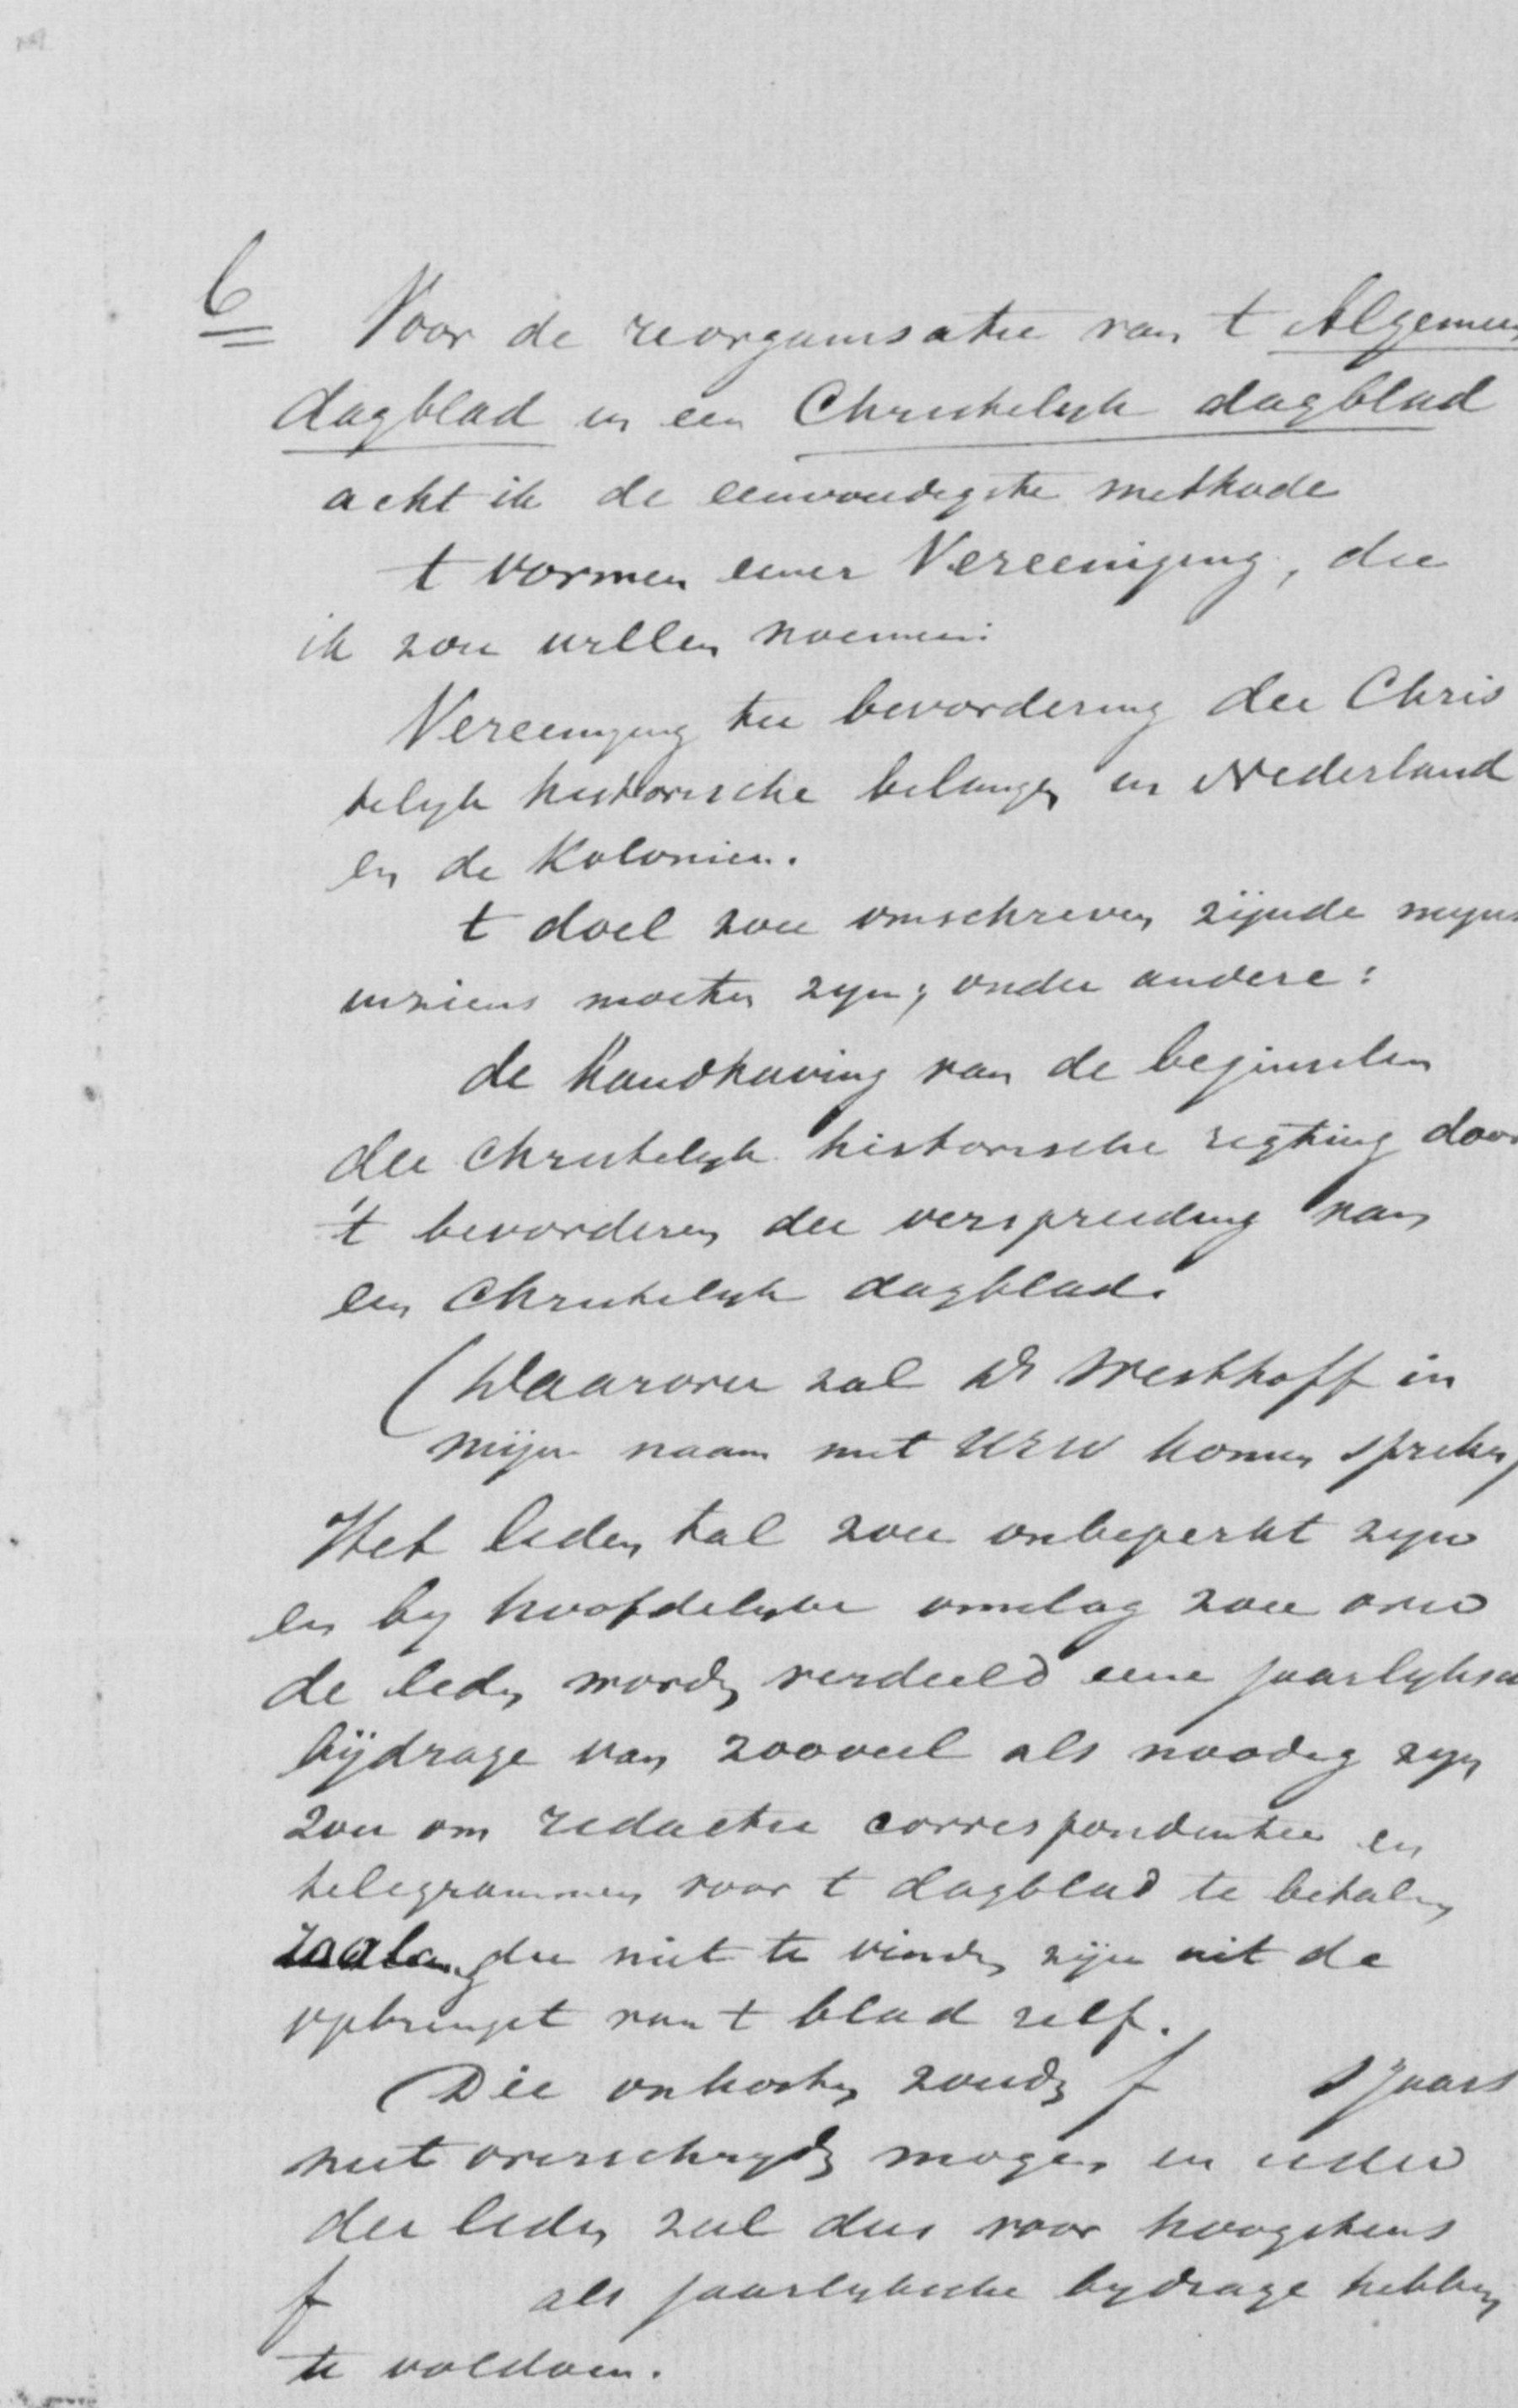 6 Voor de reorganisatie van t Algemeen
dagblad in een Christelijk dagblad
acht ik de eenvoudigste methode
t vormen eener Vereeniging, die
ik zou willen noemen:
Vereeniging ter bevordering der Chris
telijk historische belangen in Nederland
en de Kolonien.
t doel zou omschreven zijnde mijns
inziens moeten zijn; onder andere:
de handhaving van de beginselen
der Christelijk historische rigting door
't bevorderen der verspreiding van
een Christelijk dagblad.
(Waarover zal Ds Westhoff in
mijn naam met UEW komen spreken)
Het leden tal zou onbeperkt zijn
en bij hoofdelijken omslag zou over
de leden worden verdeeld eene jaarlijksche
bijdrage van zooveel als noodig zijn
zou om redactie correspondentie en
telegrammen voor t dagblad te betalen
zoolang die niet te vinden zijn uit de
opbrengst van t blad zelf.
Die onkosten zouden f sjaars
niet overschrijden mogen en ieder
der leden zal dus voor hoogstens
f als jaarlijksche bijdrage hebben
te voldoen.